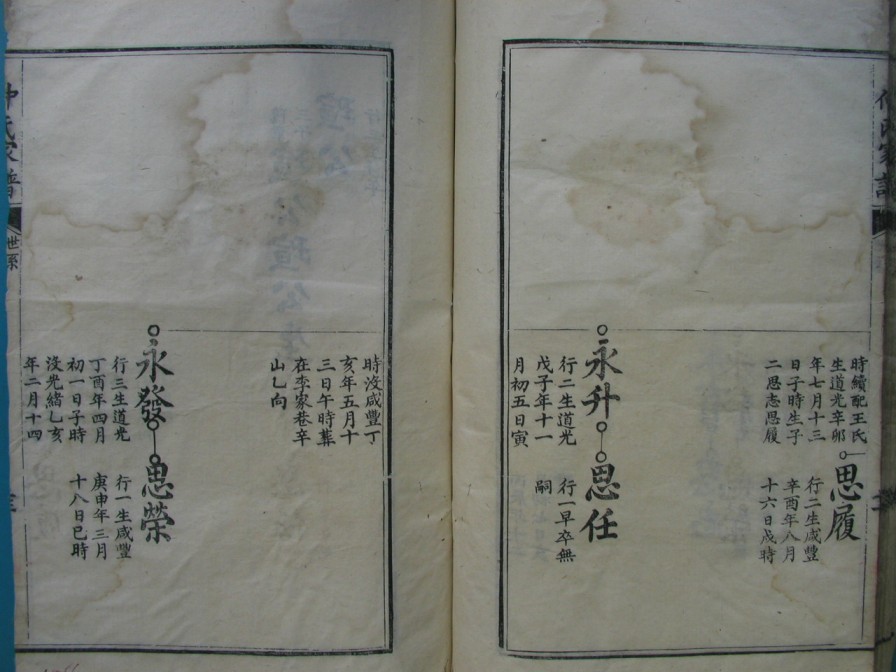 時續配王氏
生道光辛卯
年七月十三
日子時生子
二思志思履
思履
行二生咸豐
辛酉年八月
十六日戌時
永升
行二生道光
戊子年十一
月初五日寅
思任
行一早卒無
嗣
時沒咸豐丁
亥年五月十
三日午時葬
在李家巷辛
山乙向
永發
行三生道光
丁酉年四月
初一日子時
沒光緒乙亥
年二月十四
思榮
行一生咸豐
庚申年三月
十八日巳時
氏家譜
世系